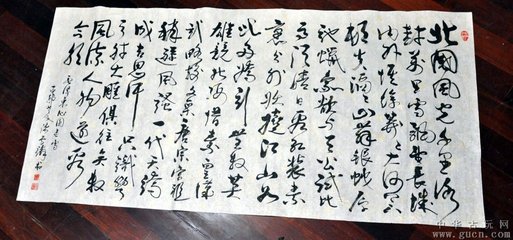 北國風光千里冰
封萬里雪飄望長城
内外惟餘莽莽大河上下
頓失滔滔山舞銀蛇原
馳蠟象欲與天公試比
高須晴日看紅裝素
裹分外妖嬈江山如
此多嬌引無數英
雄競折腰惜秦皇漢
武略輸文采唐宗宋祖
稍遜風騷一代天驕
成吉思汗只識彎
弓射大雕俱往矣數
風流人物還看
今朝
毛澤東沁園春雪
中华古玩网
www.gucn.com